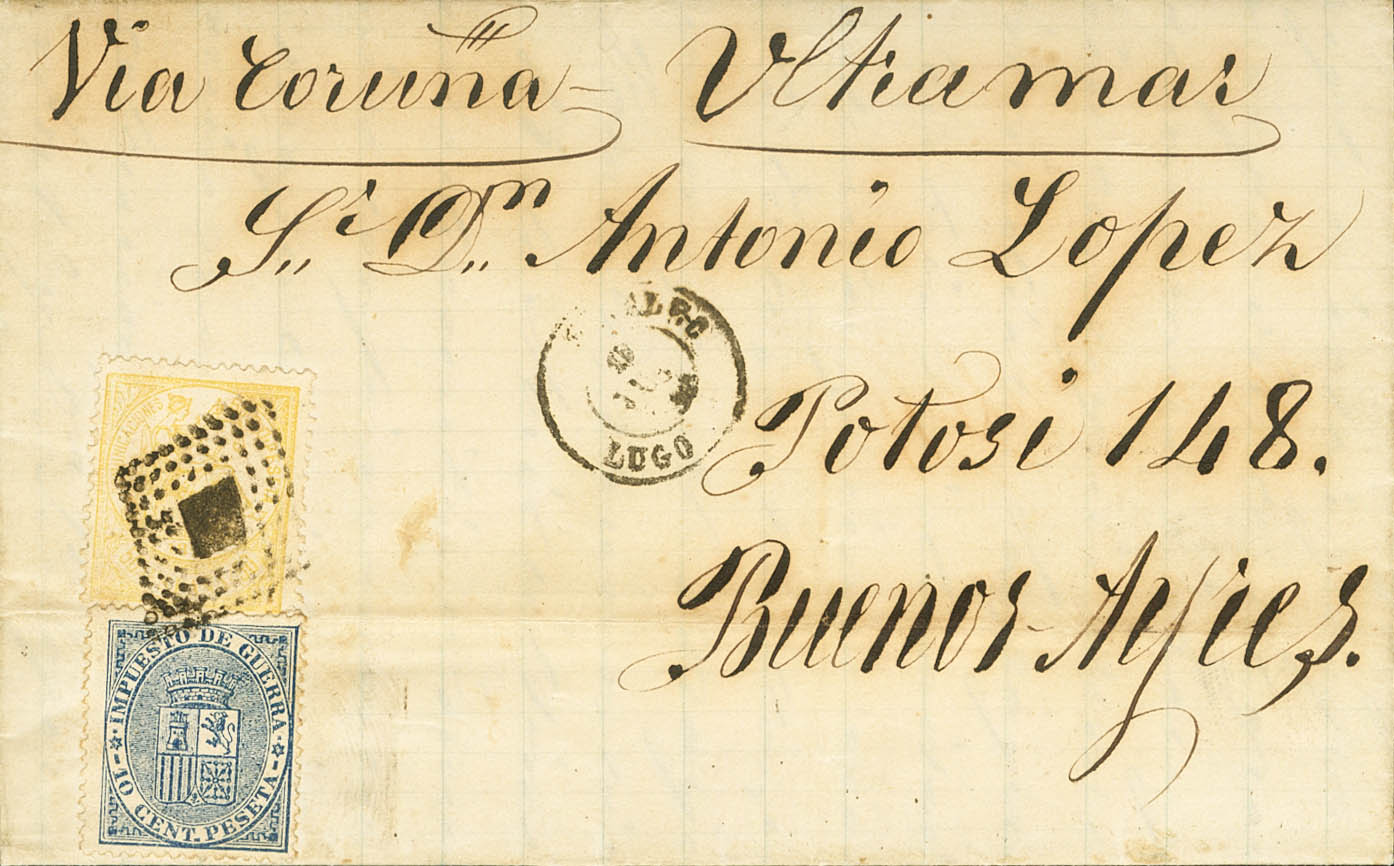 Via Coruña - Ultramar
Sr. Dn. Antonio Lopez
LUGO
Potosi 148.
Buenos-Ayres.
IMPUESTO DE GUERRA
10 CENT. PESETA